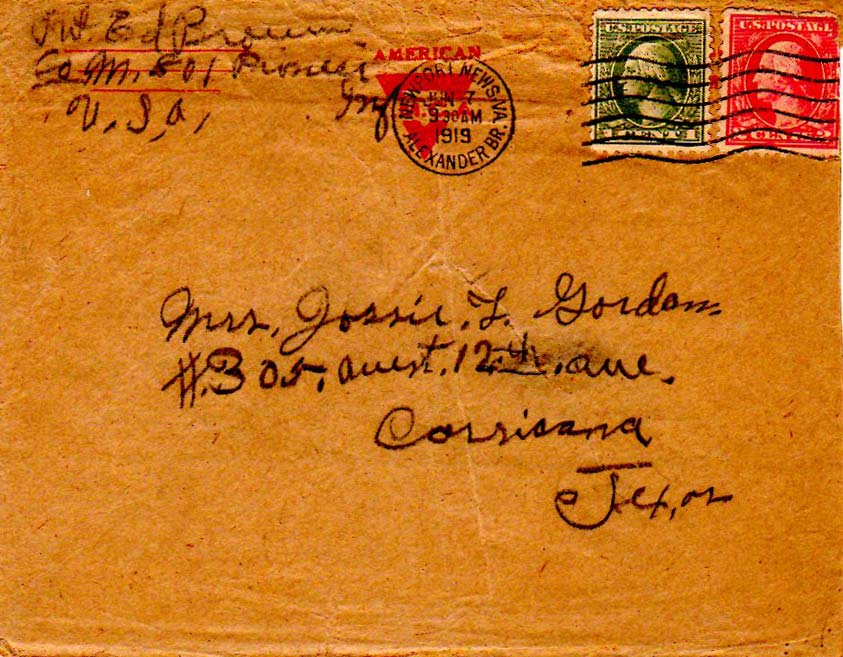 Pvt. Ed Brown
Co. M. 801 Pioneer
Inf
U, S, A,
AMERICAN
NEWPORT NEWS, VA.
JUN 7
9 30 AM
1919
ALEXANDER BR.
U.S. POSTAGE
U.S. POSTAGE
CENTS 2
Mrs, Jossie. L Gordon.
#305, West. 12th. ave.
Corsicana
Texas